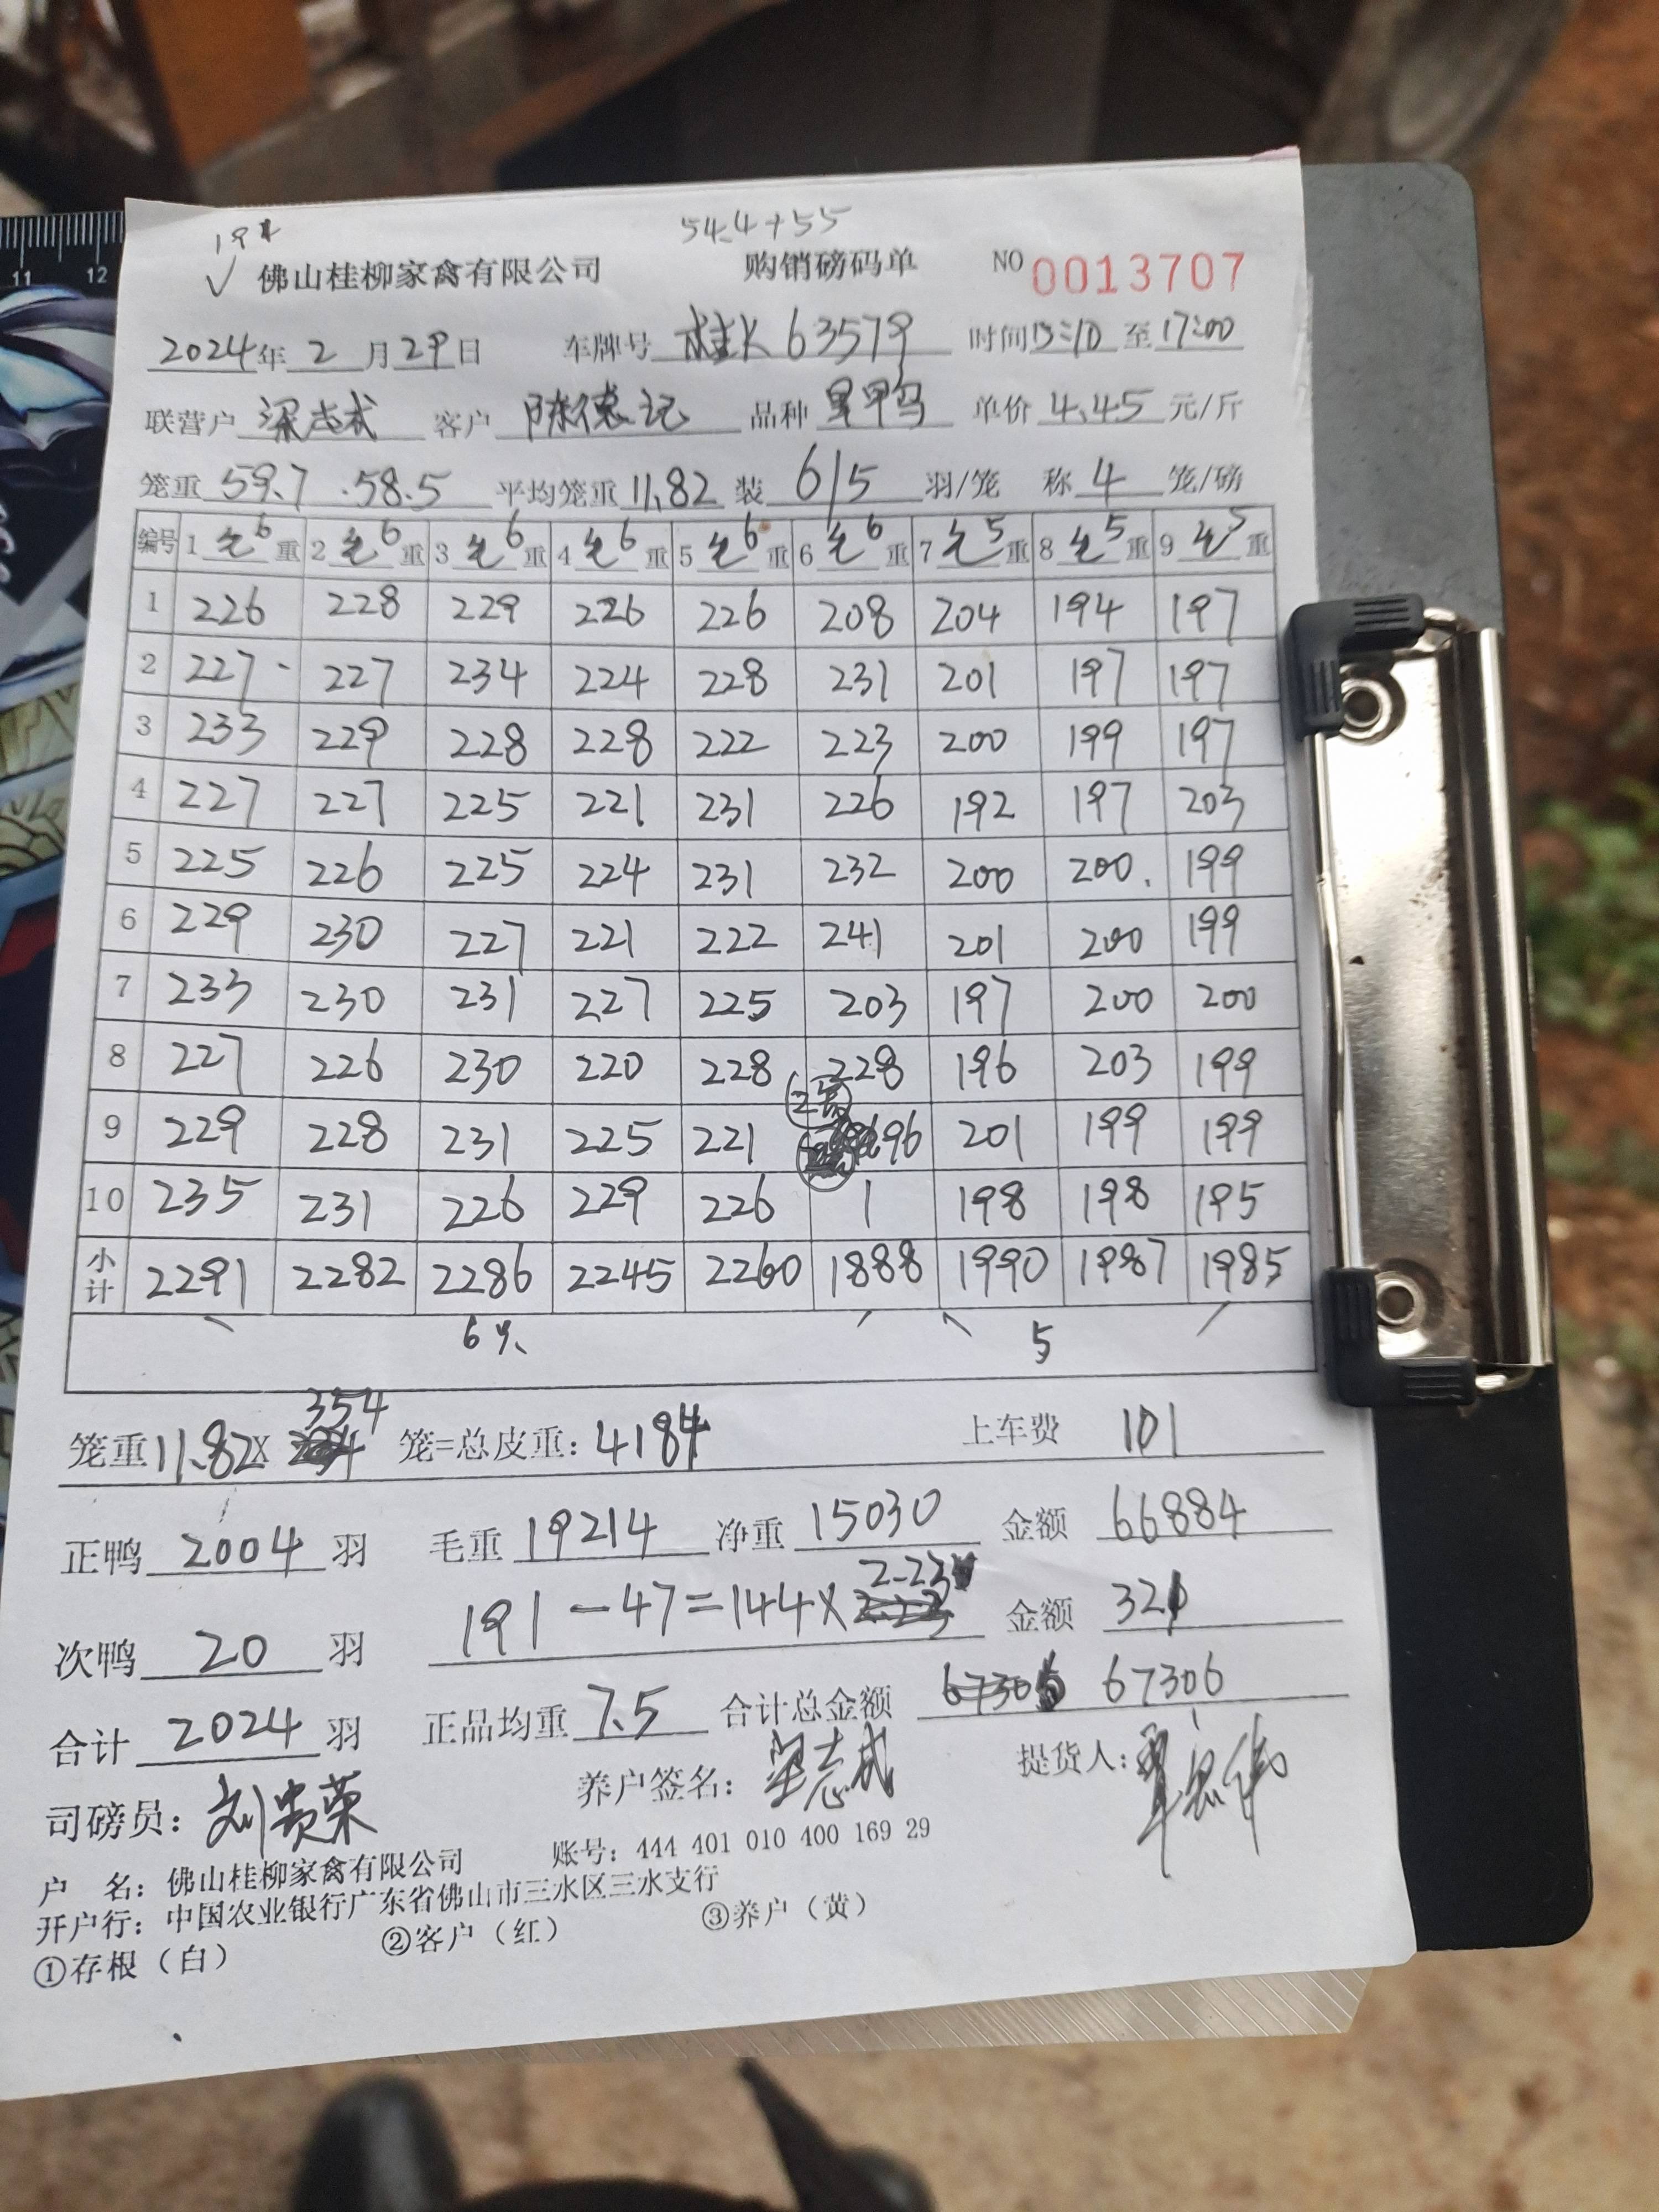 54.4+55
佛山桂柳家禽有限公司 购销磅码单 NO 0013707
2024年 2 月 29日 车牌号 桂K 63579 时间13:10 至 17:00
联营户 梁志成 客户 陈德记 品种 单价 4.45 元/斤
笼重 59.7 .58.5 平均笼重 11.82 装 6/5 羽/笼 称 4 笼/磅
编号 1 毛6重 2 毛6重 3 毛6重 4 毛6重 5 毛6重 6 毛6重 7 毛5重 8 毛5重 9 毛5重
1 226 228 229 226 226 208 204 194 197
2 227 227 234 224 228 231 201 197 197
3 233 229 228 228 222 223 200 199 197
4 227 227 225 221 231 226 192 197 203
5 225 226 225 224 231 232 200 200. 199
6 229 230 227 221 222 241 201 200 199
7 233 230 231 227 225 203 197 200 200
8 227 226 230 220 228 228 196 203 199
9 229 228 231 225 221 96 201 199 199
10 235 231 226 229 226 1 198 198 195
小计 2291 2282 2286 2245 2260 1888 1990 1987 1985
6 5
笼重11.82X 354 笼=总皮重: 4184 上车费 101
正鸭 2004 羽 毛重 19214 净重 15030 金额 66884
次鸭 20 羽 191-47=144X 金额 321
合计 2024 羽 正品均重 7.5 合计总金额 67306
司磅员: 刘贵荣 养户签名: 梁志成 提货人:
户 名: 佛山桂柳家禽有限公司 账号: 444 401 010 400 169 29
开户行: 中国农业银行广东省佛山市三水区三水支行
①存根（白） ②客户（红） ③养户（黄）
11 12